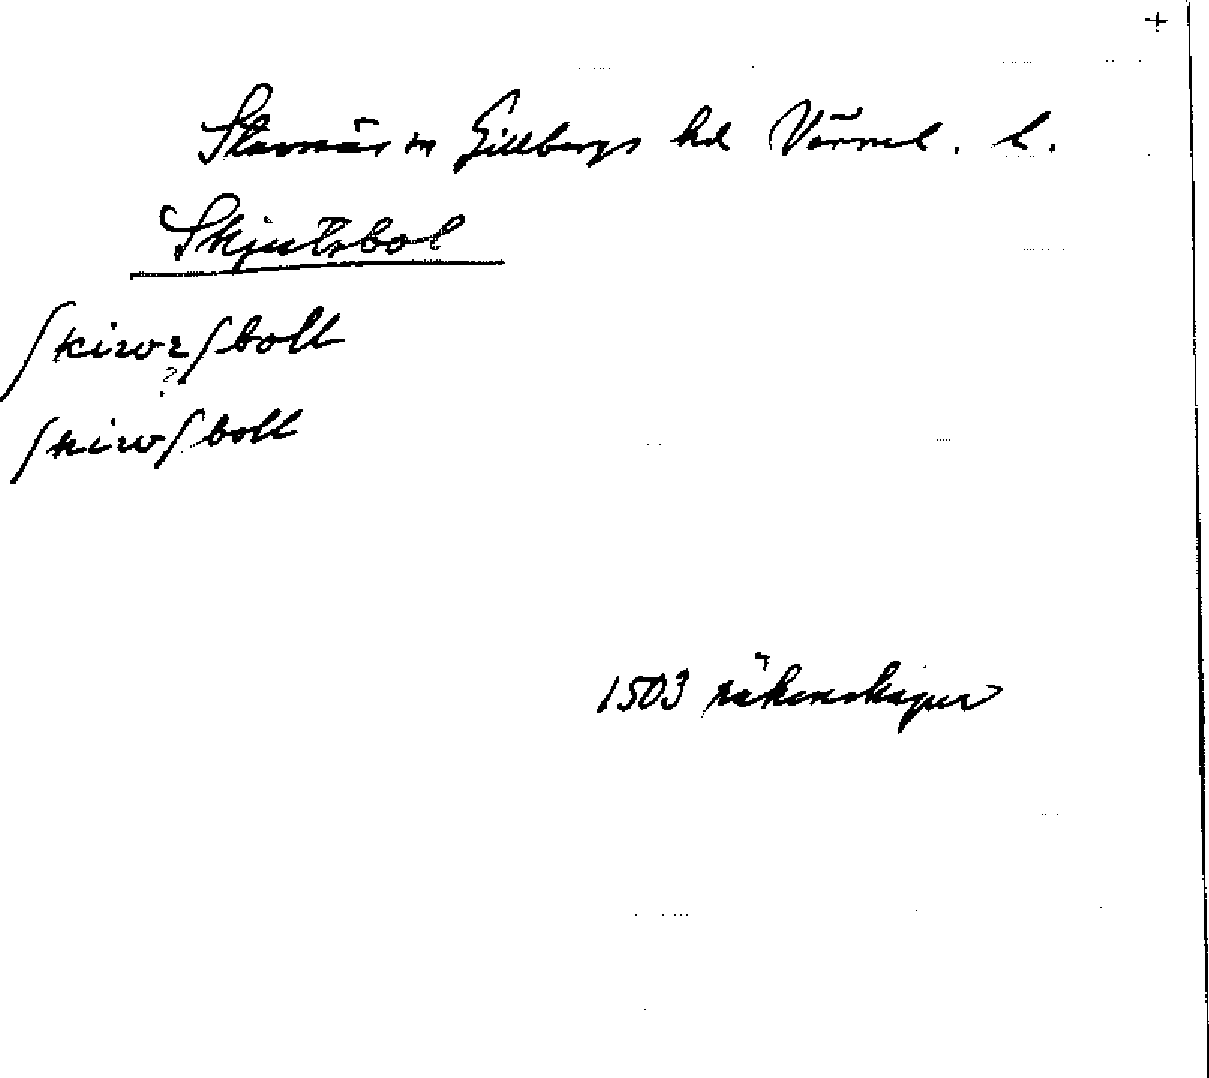 +
Stavnäs sn Gillbergs hd Värml. l.
Skjutsbol
ſkiwrſboll
?
ſkiwſboll
1503 räkenskaper